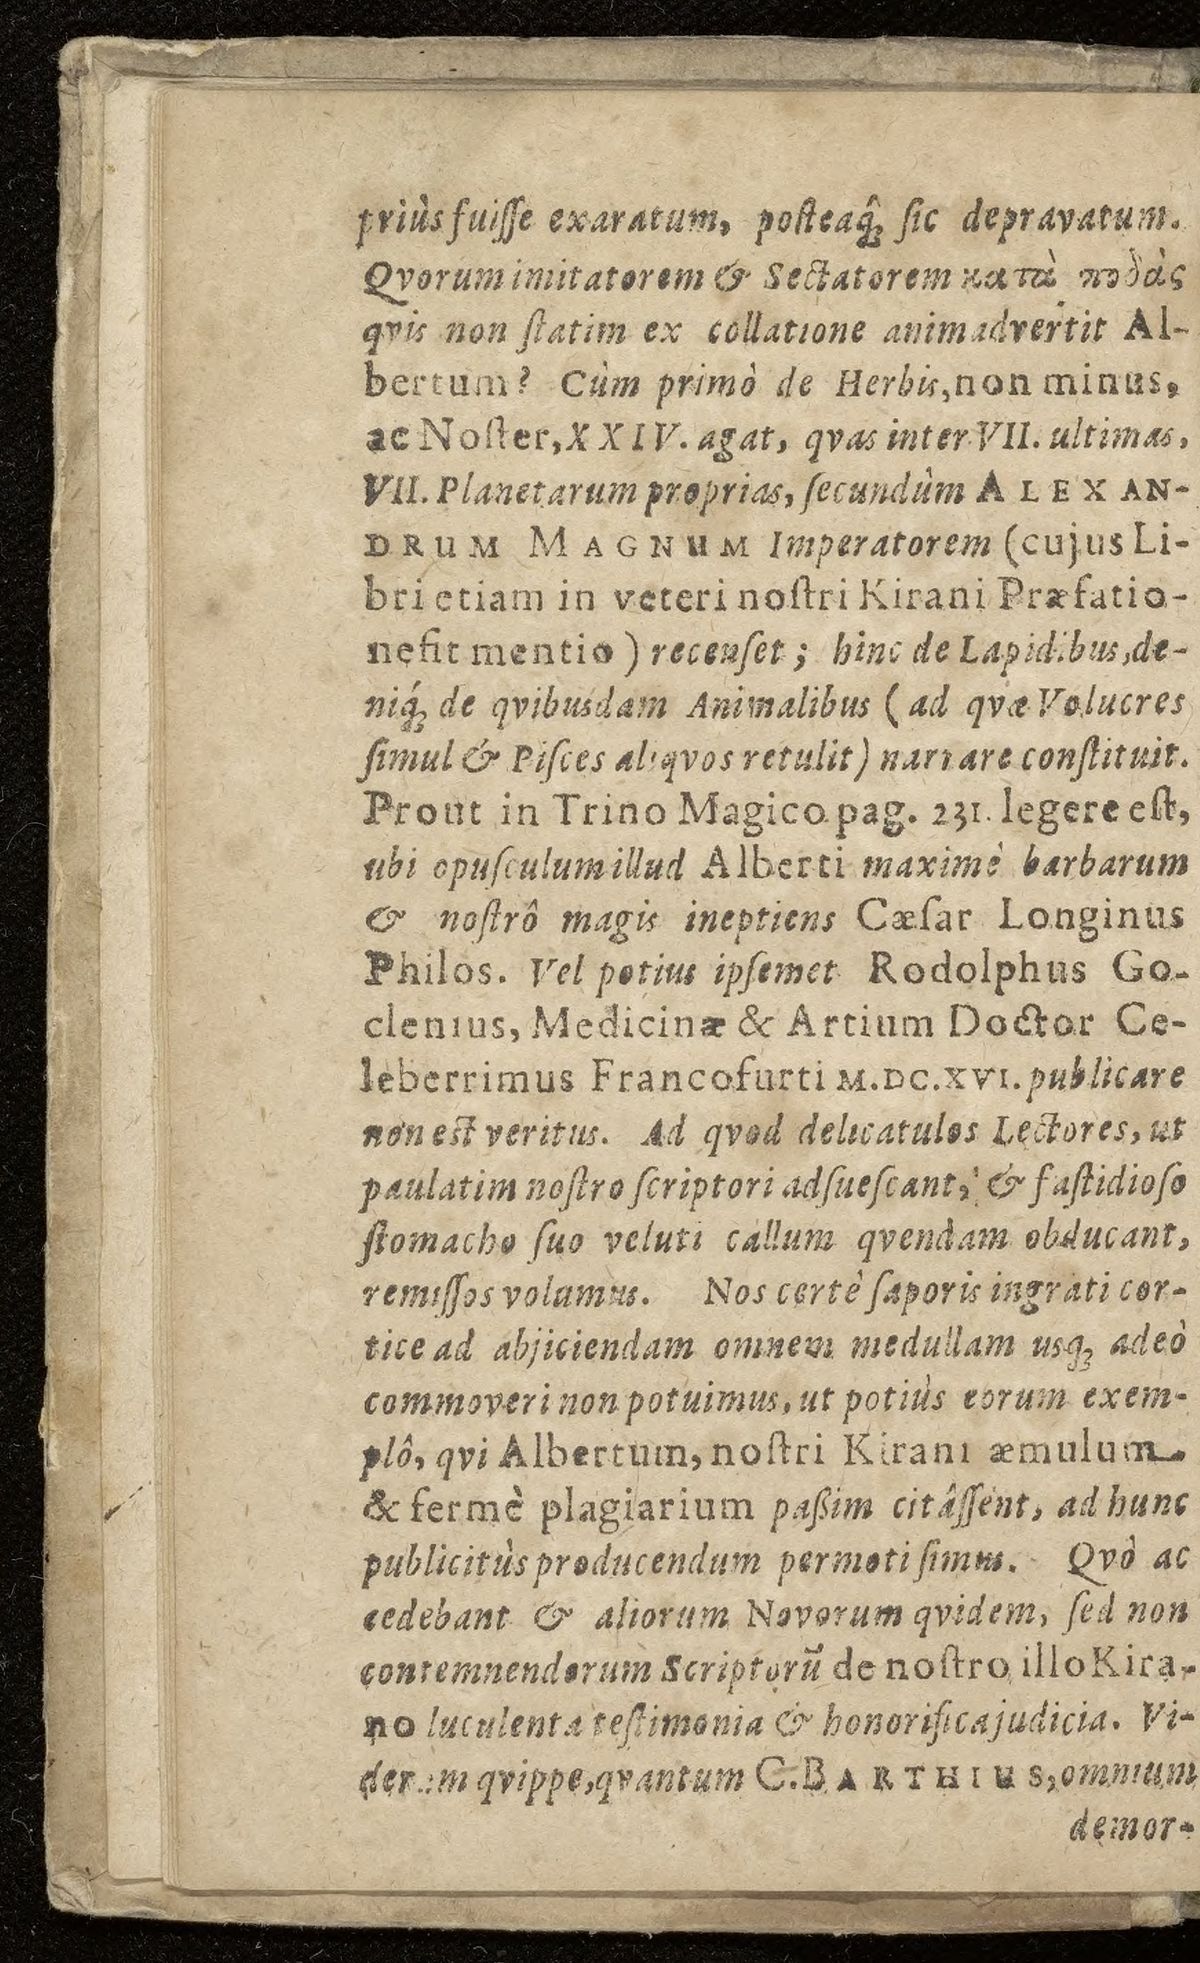 priùs fuiſſe exaratum, poſteaq́ꝫ ſic depravatum.
Qvorum imitatorem & Sectatorem κατὰ ποδὰς
qvis non ſtatim ex collatione animadvertit Al-
bertum? Cùm primò de Herbis, non minus,
ac Noſter, XXIV. agat, qvas inter VII. ultimas,
VII. Planetarum proprias, ſecundùm ALEXAN-
DRUM MAGNUM Imperatorem (cujus Li-
bri etiam in veteri noſtri Kirani Præfatio-
ne fit mentio) recenſet; hinc de Lapidibus, de-
niq́ꝫ de qvibusdam Animalibus (ad qvæ Volucres
ſimul & Piſces aliqvos retulit) narrare conſtituit.
Prout in Trino Magico pag. 231. legere eſt,
ubi opuſculum illud Alberti maximè barbarum
& noſtrô magis ineptiens Cæſar Longinus
Philos. Vel potius ipſemet Rodolphus Go-
clenius, Medicinæ & Artium Doctor Ce-
leberrimus Francofurti M.DC.XVI. publicare
non est veritus. Ad qvod delicatulos Lectores, ut
paulatim noſtro ſcriptori adſueſcant, & faſtidioſo
ſtomacho ſuo veluti callum qvendam obducant,
remiſſos volumus. Nos certè ſaporis ingrati cor-
tice ad abjiciendam omnem medullam usqꝫ adeò
commoveri non potuimus, ut potiùs eorum exem-
plô, qvi Albertum, noſtri Kirani æmulum
& fermè plagiarium paßim citâſſent, ad hunc
publicitùs producendum permoti ſimus. Qvò ac
cedebant & aliorum Novorum qvidem, ſed non
contemnendorum Scriptorũ de noſtro illo Kira-
no luculenta teſtimonia & honorifica judicia. Vi-
deram qvippe, qvantum C. BARTHIUS, omnium
demor-